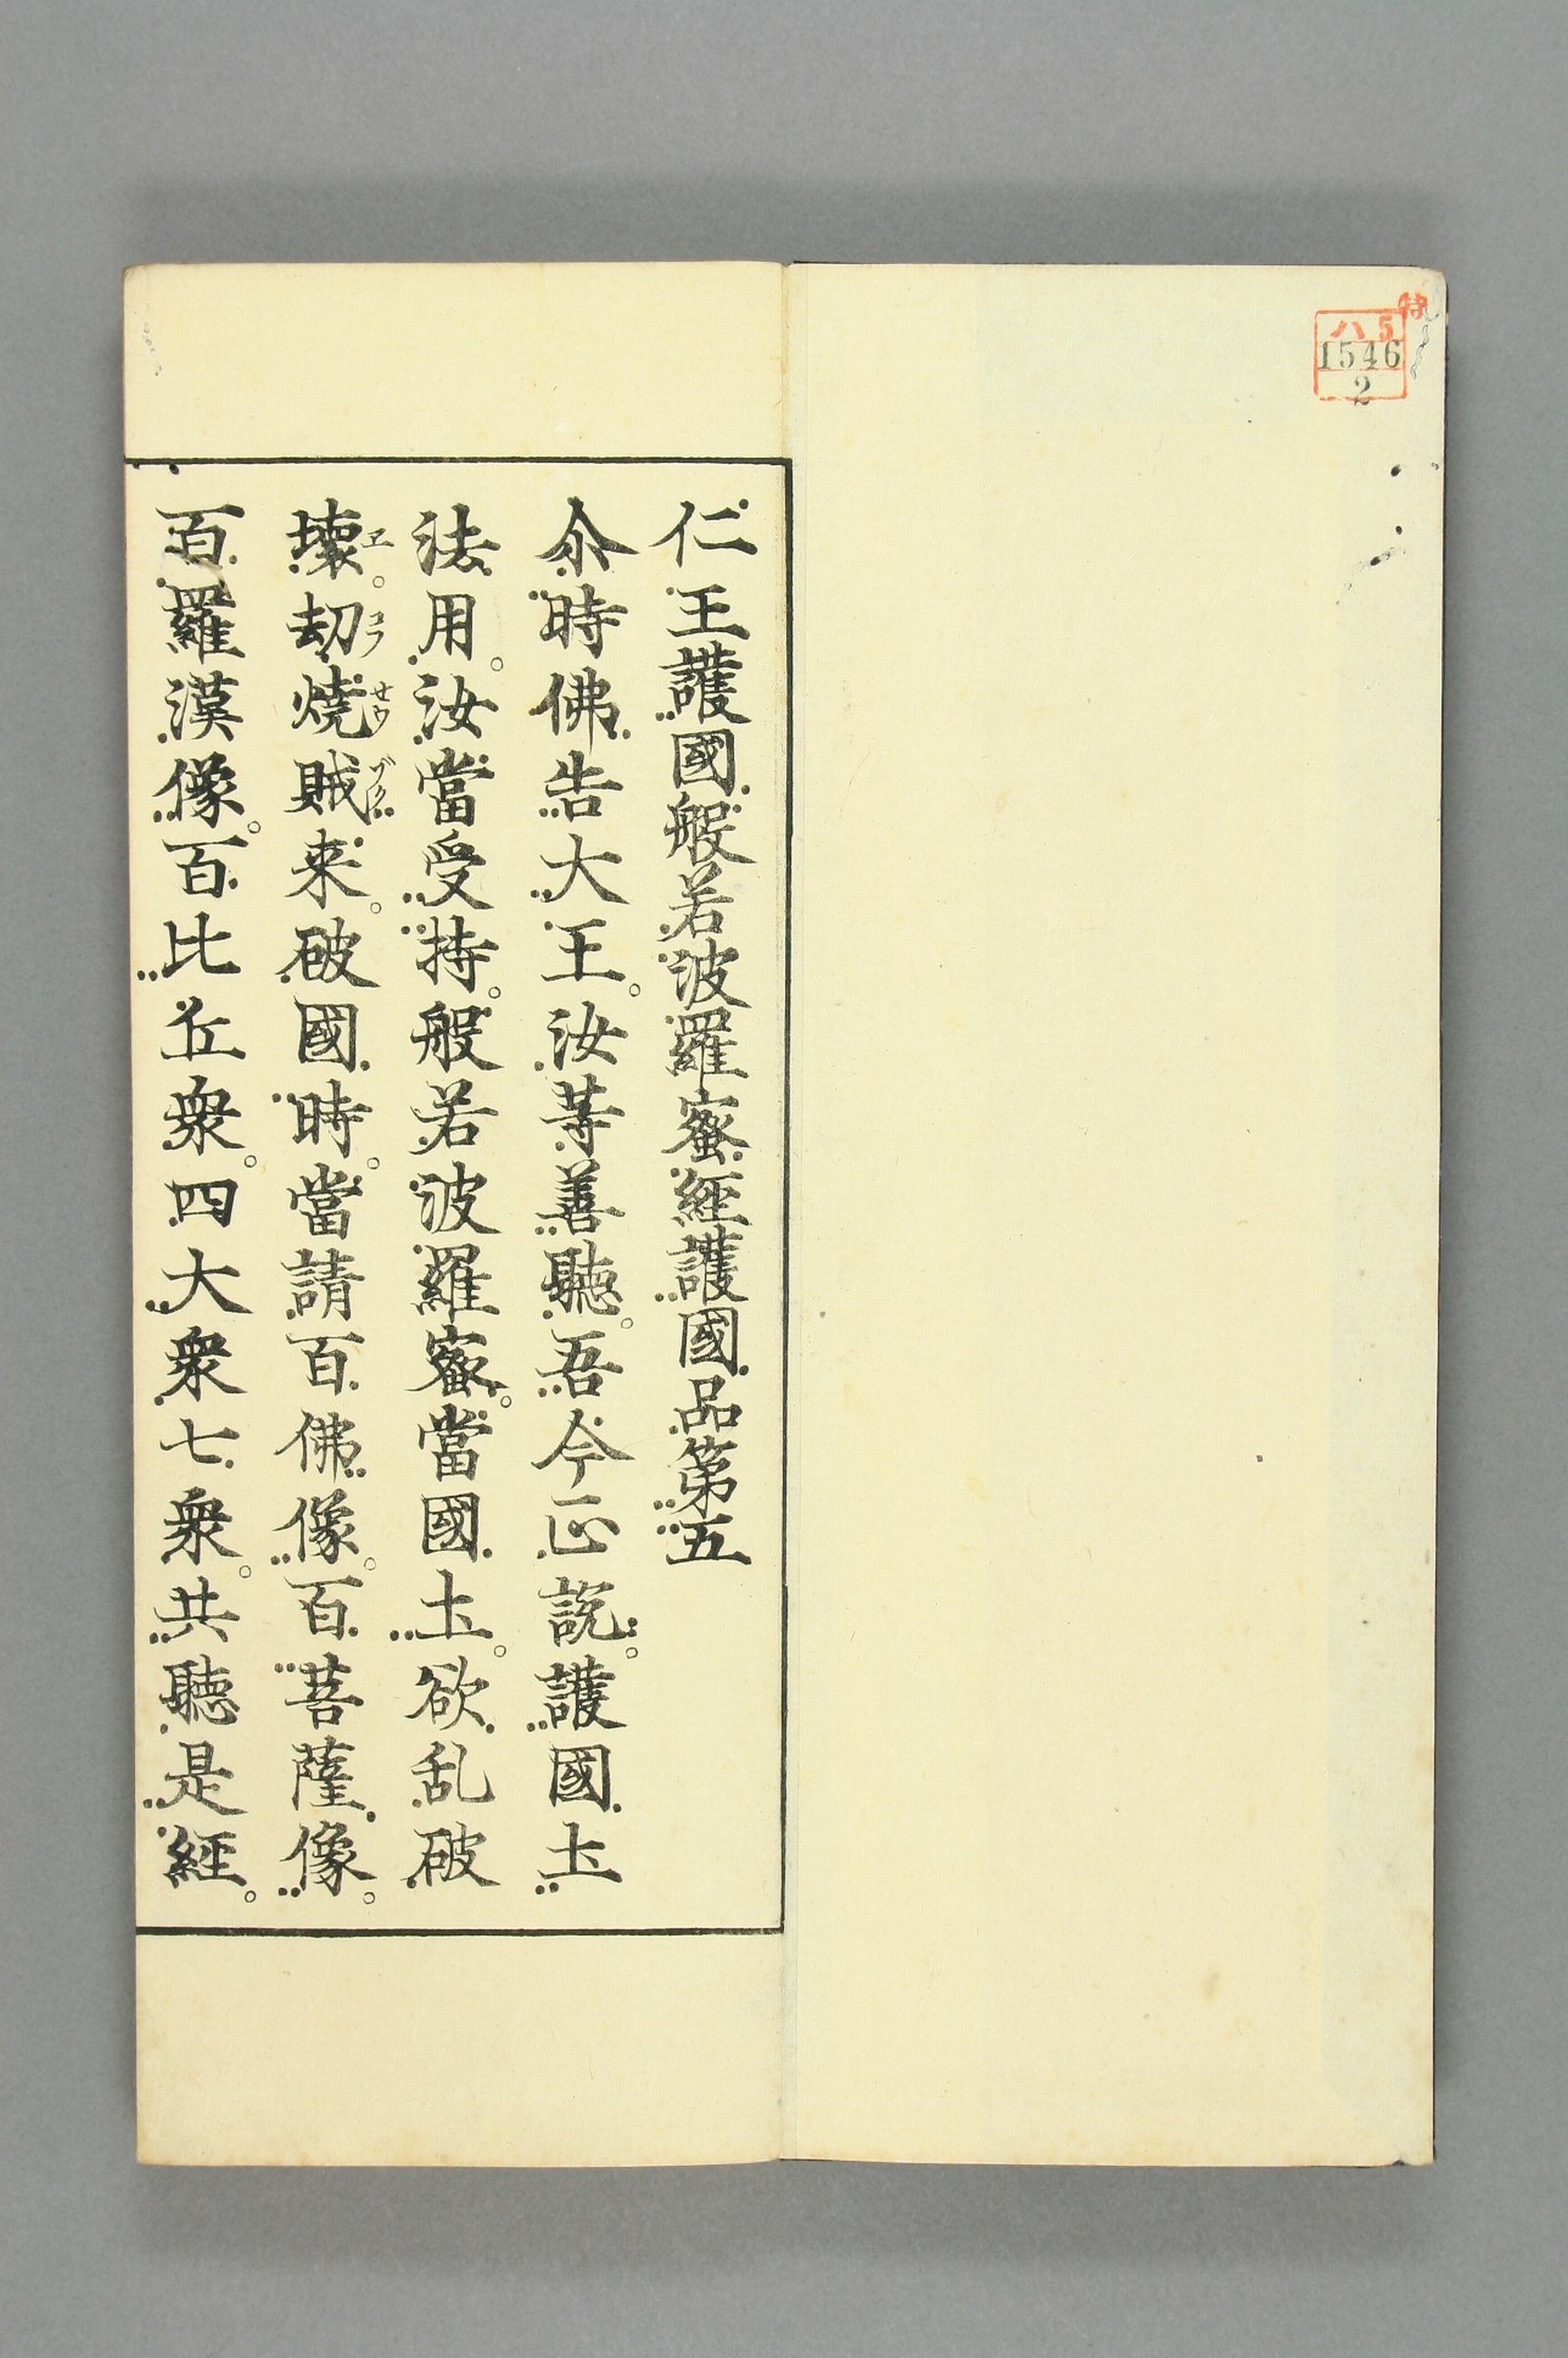 特
ハ5
1546
2
仁王護國般若波羅蜜經護國品第五
尒時佛告大王。汝等善聽。吾今正說。護國土
法用。汝當受持。般若波羅蜜。當國土。欲乱破
壞。劫燒賊来。破國時。當請百佛像。百菩薩像。
百羅漢像。百比丘衆。四大衆七衆。共聽是經。
ヱ
コフ
せウ